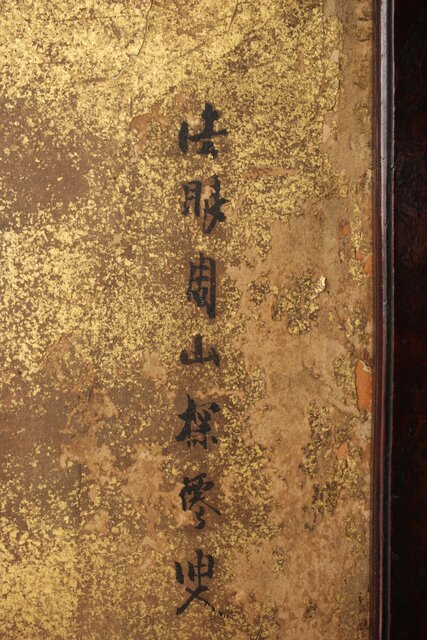 法眼周山探僊叟